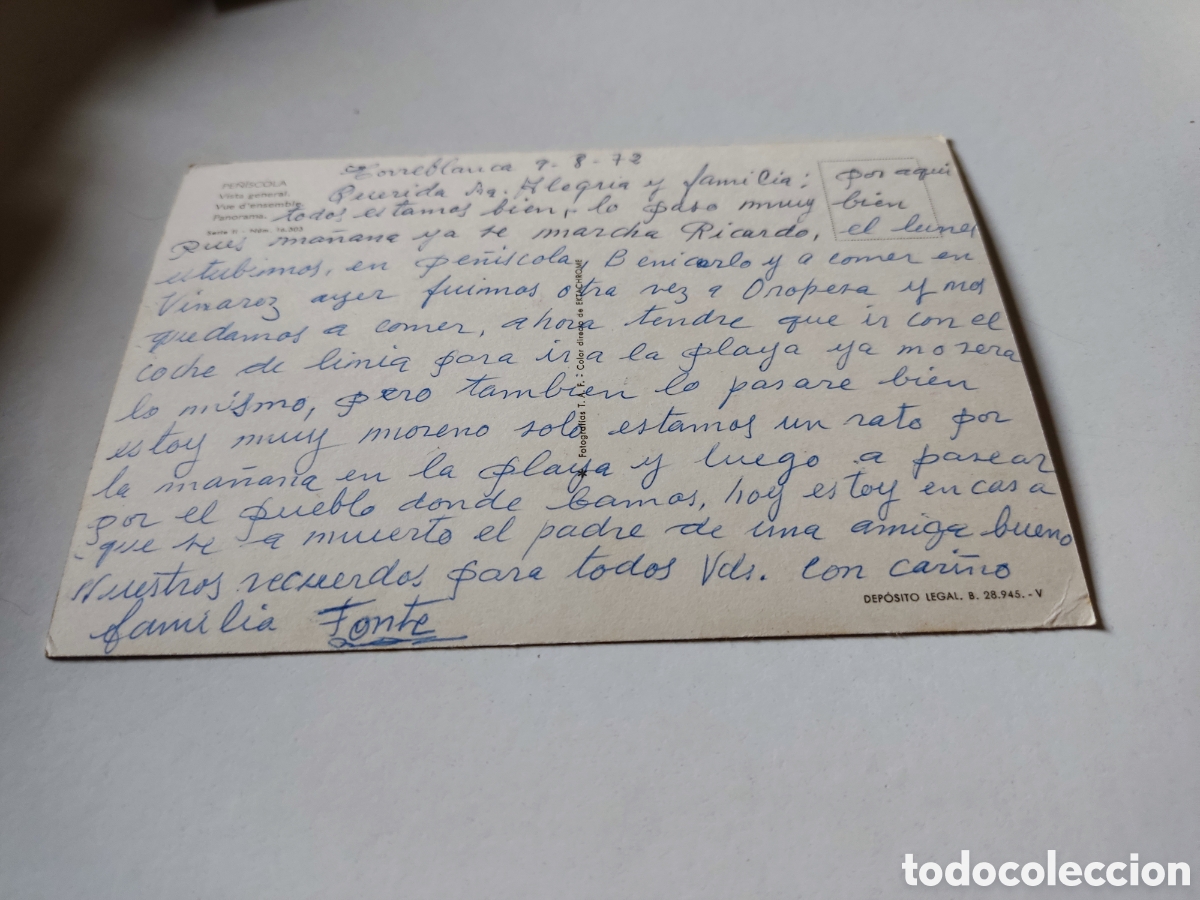 Torreblanca 9-8-72
PEÑISCOLA
Vista general.
Vue d'ensemble.
Panorama.
Serie II - Núm.
Querida Alegria y familia; por aqui
todos estamos bien, lo paso muy bien
pues mañana ya se marcha Ricardo, el lunes
estubimos, en Peñiscola, Benicarlo y a comer en
Vinaroz ayer fuimos otra vez a Oropesa y nos
quedamos a comer, ahora tendre que ir con el
coche de linia para ir a la playa ya no sera
lo mismo, pero tambien lo pasare bien
estoy muy moreno solo estamos un rato por
la mañana en la playa y luego a pasear
por el pueblo donde bamos, hoy estoy en casa
que se a muerto el padre de una amiga bueno
Nuestros recuerdos para todos Vds. con cariño
familia Fonte
Fotografías T. A. F. : Color directo de EKTACHROME
DEPÓSITO LEGAL. B. 28.945. - V
todocoleccion